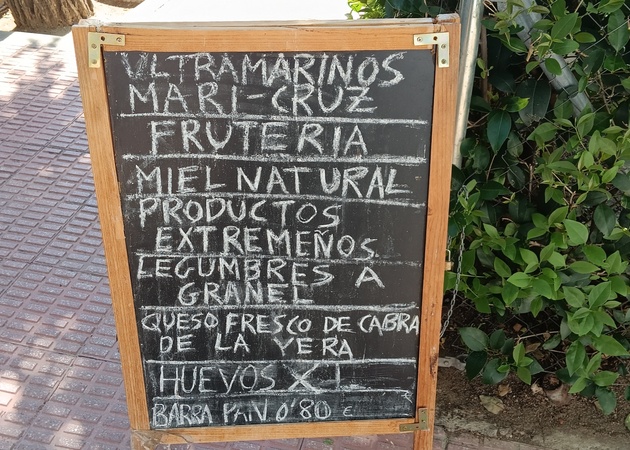 ULTRAMARINOS
MARI-CRUZ
FRUTERIA
MIEL NATURAL
PRODUCTOS
EXTREMEÑOS
LEGUMBRES A
GRANEL
QUESO FRESCO DE CABRA
DE LA VERA
HUEVOS XL
BARRA PAN 0'80 €